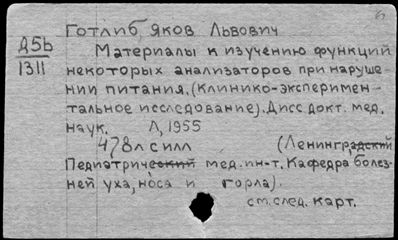 Готлиб, Яков Львович
Д5b
1311
Материалы к изучению функций
некоторых анализаторов при наруше-
нии питания. (Клинико-эксперимен-
тальное исследование). Дисс докт. мед.
наук. Л, 1955
478 л с илл (Ленинградский
Педиатрический мед. ин-т. Кафедра болез-
ней уха, носа и горла).
см. след. карт.